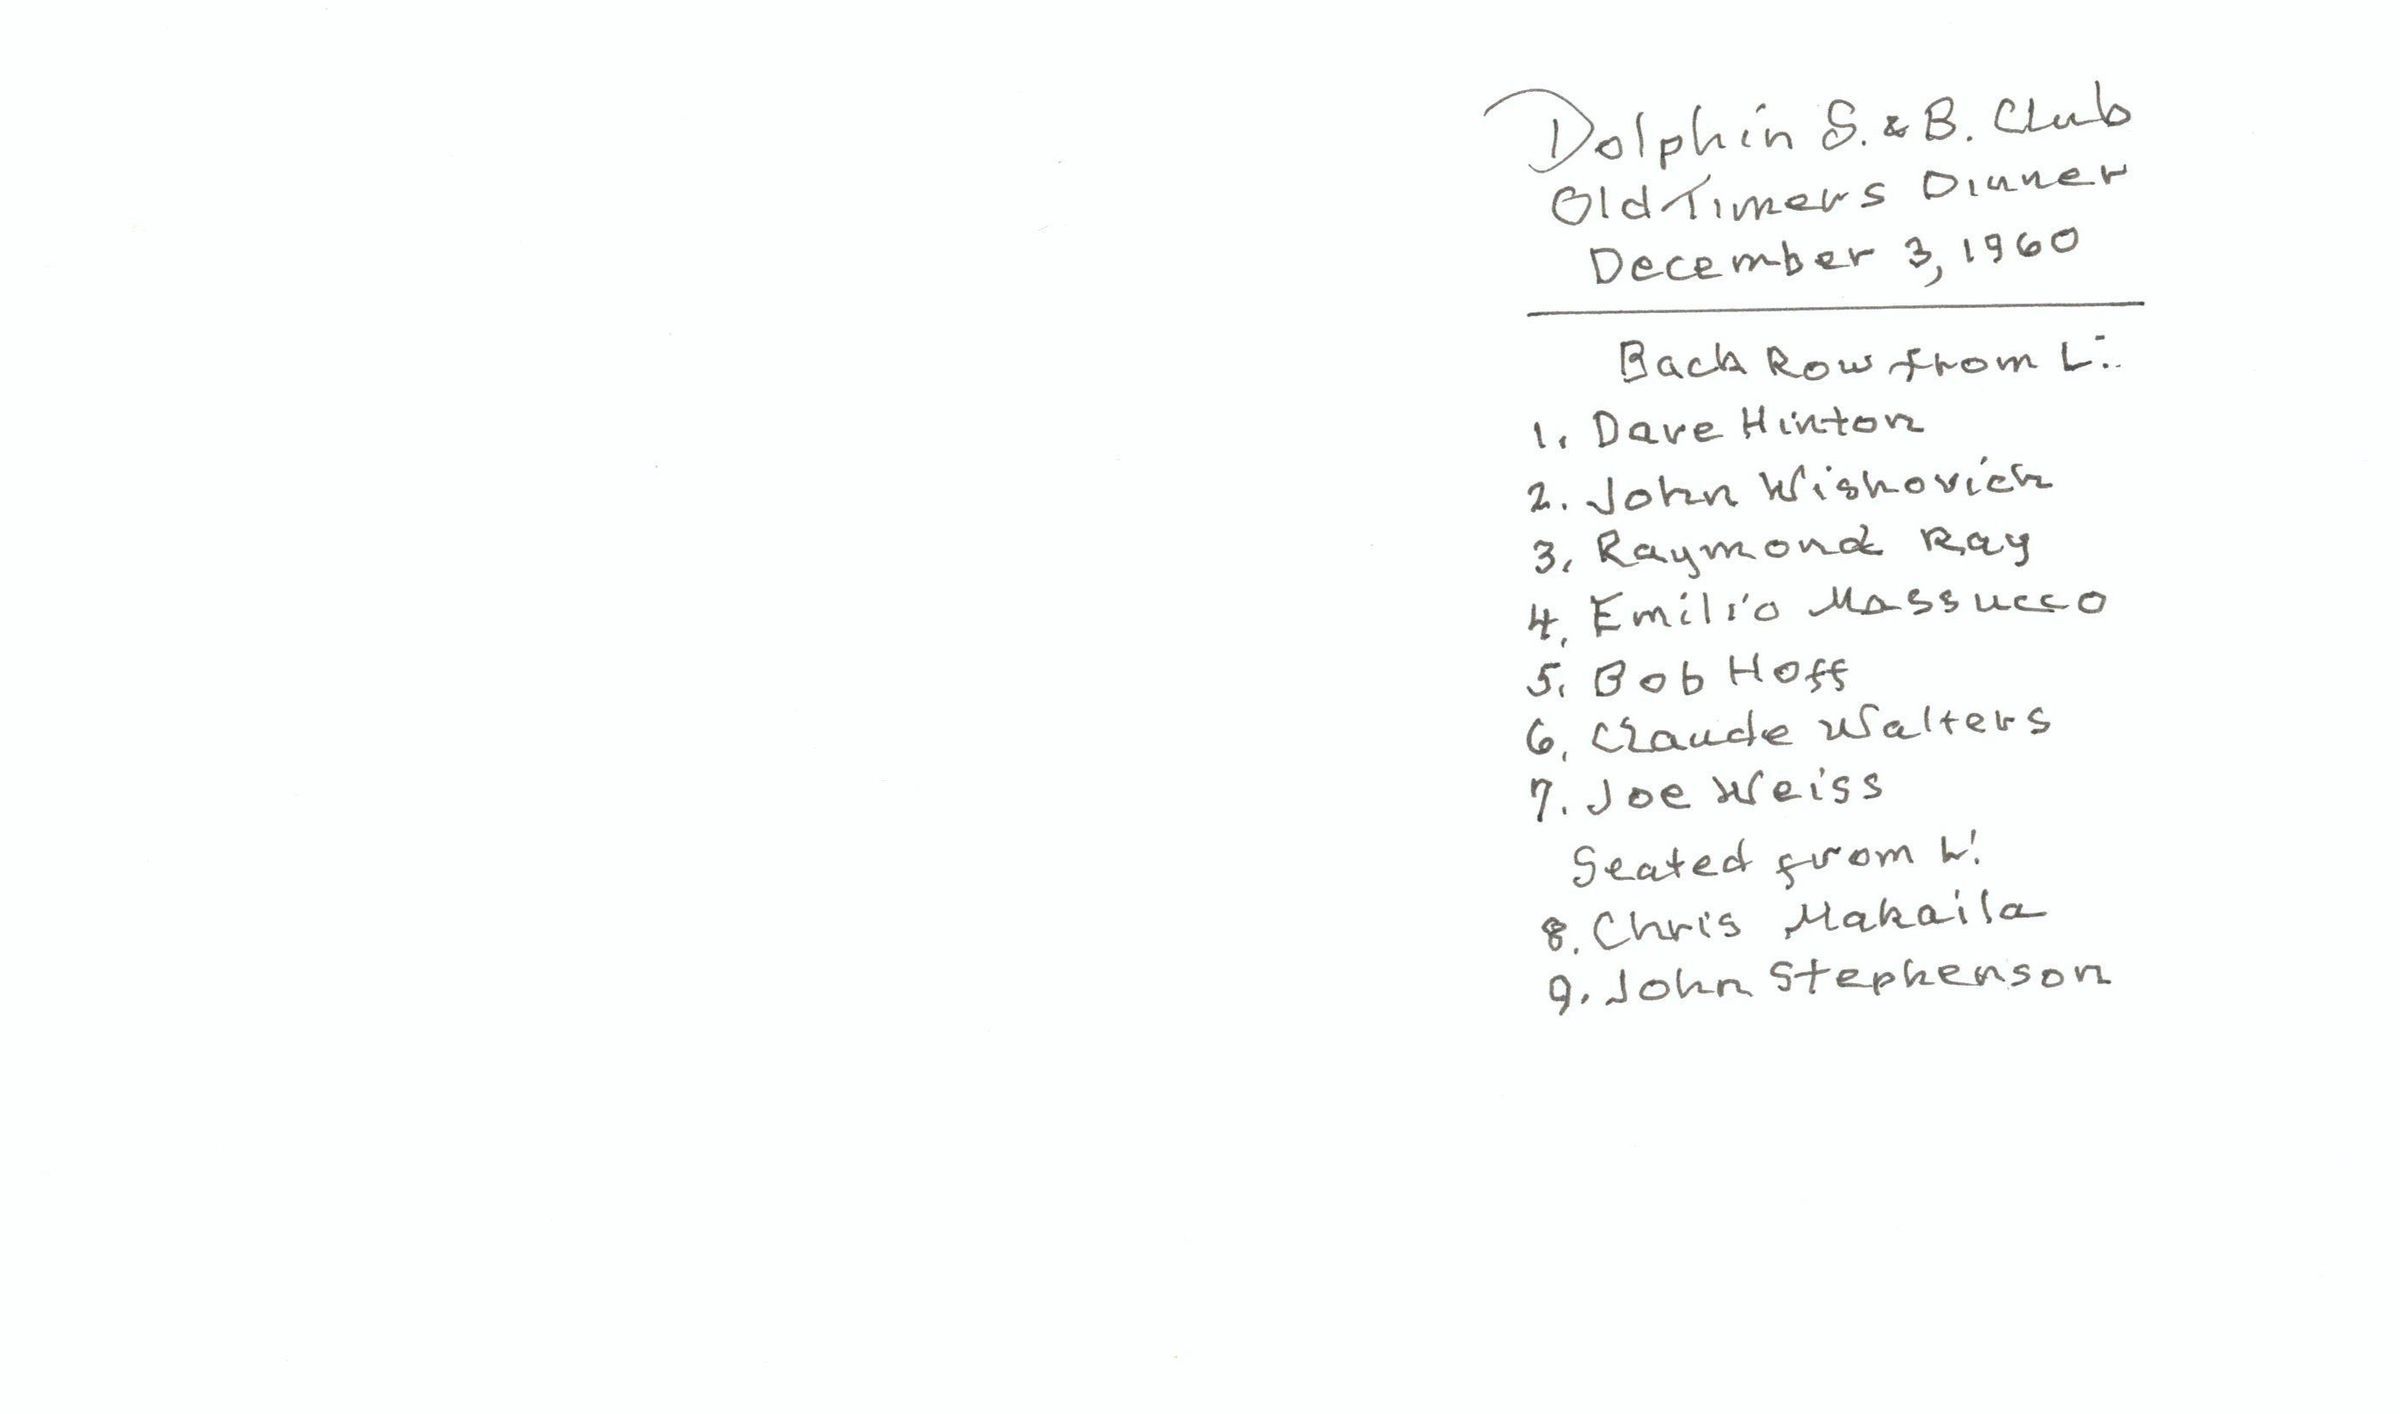 Dolphin S. & B. Club
Old Timers Dinner
December 3, 1960
Back Row from L:
1. Dave Hinton
2. John Wishovich
3. Raymond Ray
4. Emilio Massucco
5. Bob Hoff
6. Claude Walters
7. Joe Weiss
Seated from L:
8. Chris Makaila
9. John Stephenson